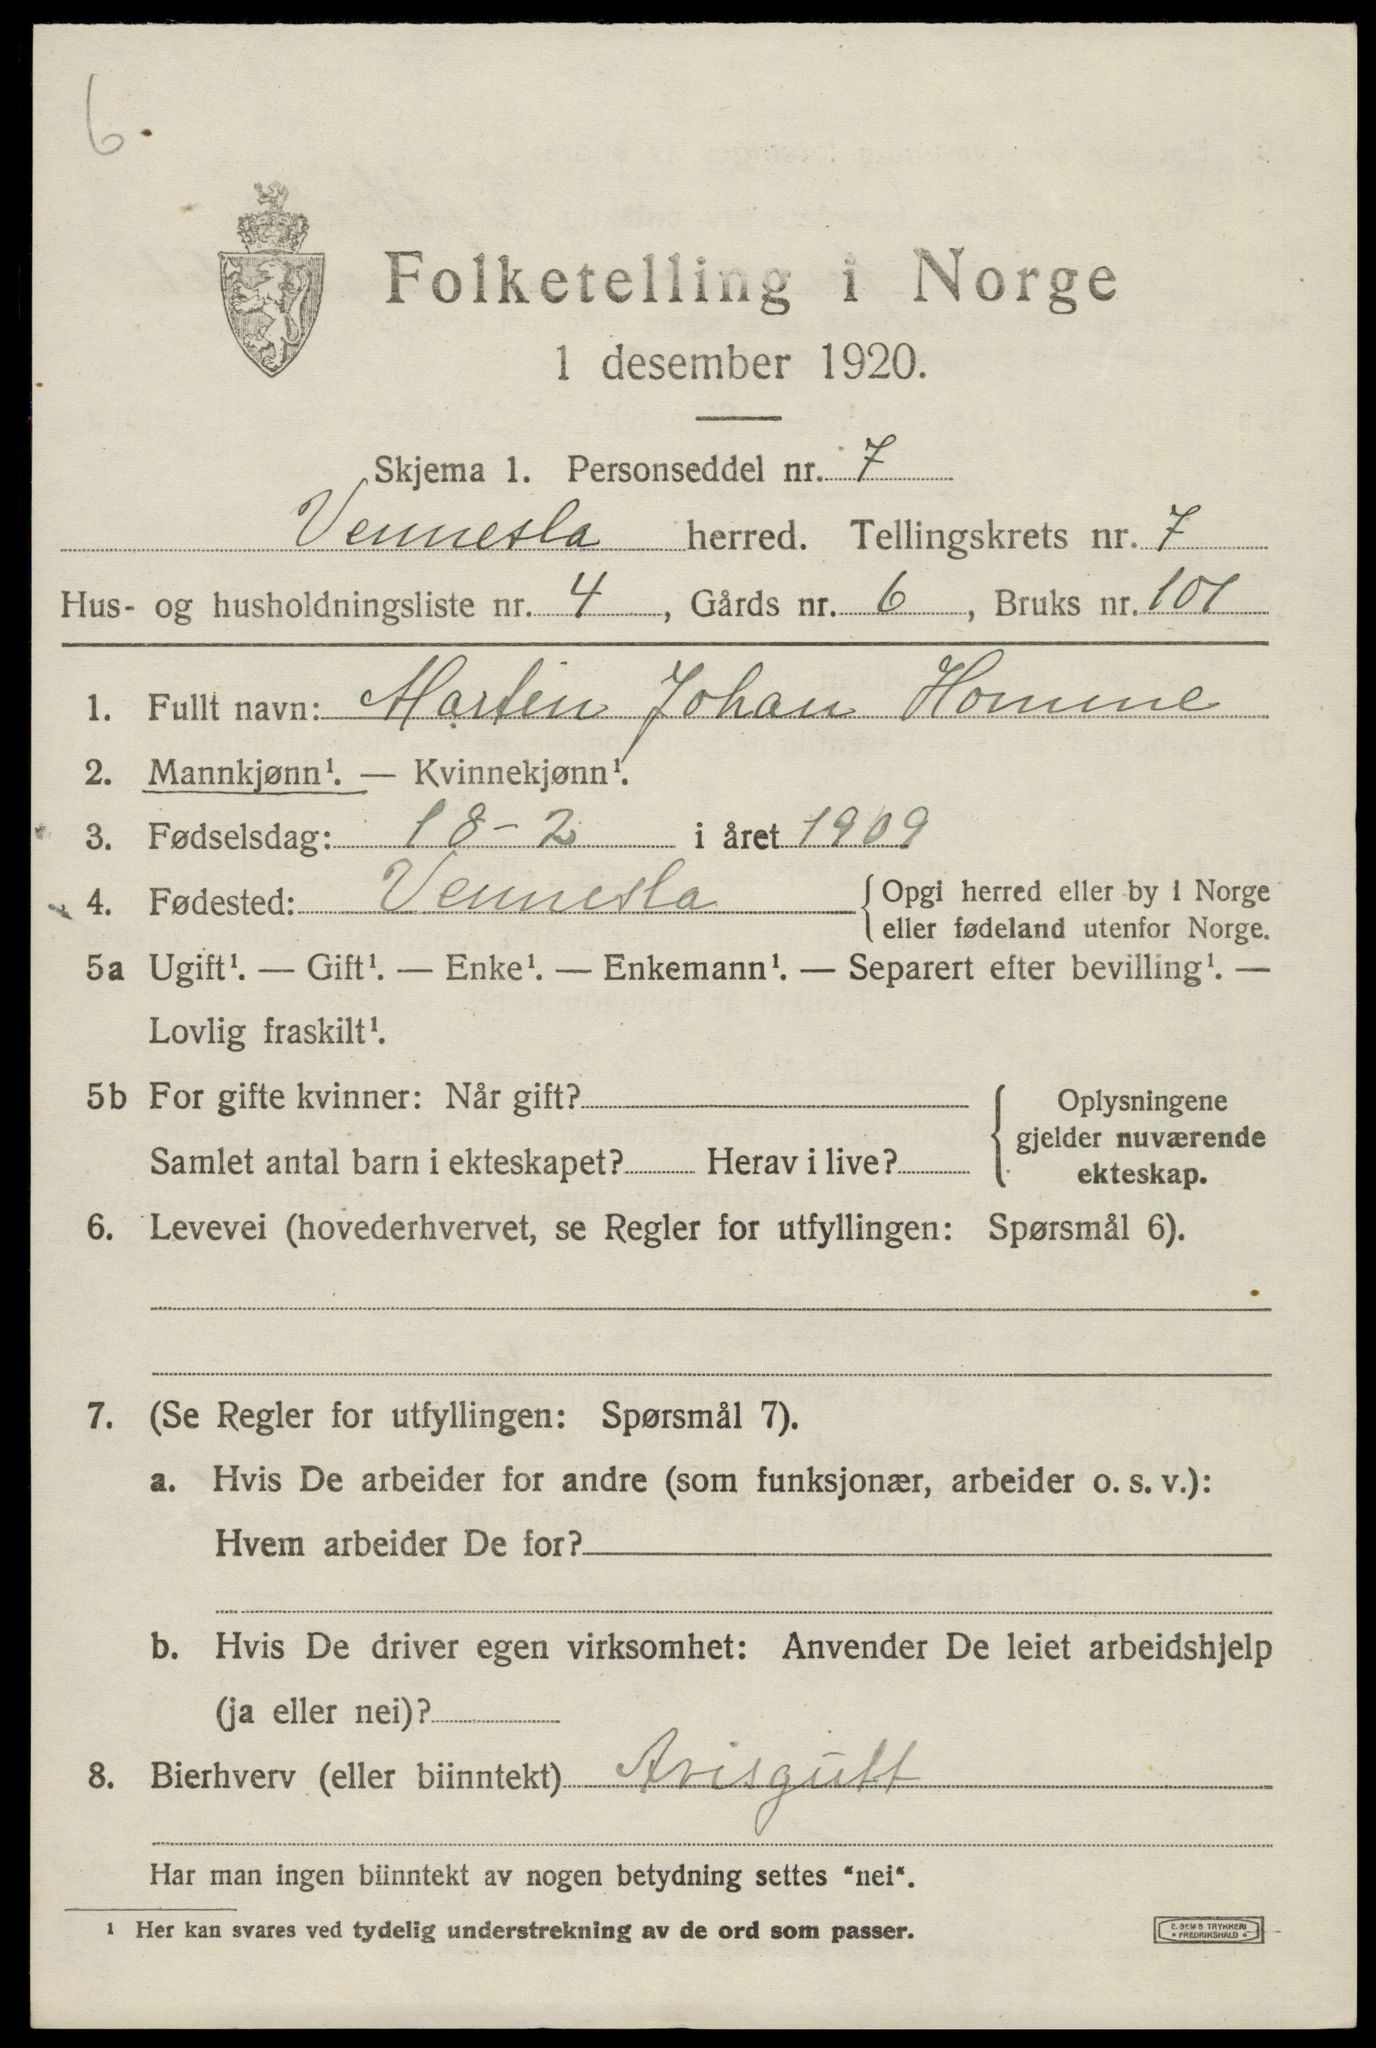 6.
Folketelling i Norge
1 desember 1920.
Skjema 1. Personseddel nr. 7
Vennesla herred. Tellingskrets nr. 7
Hus- og husholdningsliste nr. 4, Gårds nr. 6, Bruks nr. 101
1. Fullt navn: Martin Johan Homme
2. Mannkjønn¹. — Kvinnekjønn¹.
3. Fødselsdag: 18-2 i året 1909
4. Fødested: Vennesla {Opgi herred eller by i Norge
eller fødeland utenfor Norge.
5a Ugift¹. — Gift¹. — Enke¹. — Enkemann¹. — Separert efter bevilling¹. —
Lovlig fraskilt¹.
5b For gifte kvinner: Når gift?
Samlet antal barn i ekteskapet? Herav i live?
Oplysningene
gjelder nuværende
ekteskap.
6. Levevei (hovederhvervet, se Regler for utfyllingen: Spørsmål 6).
7. (Se Regler for utfyllingen: Spørsmål 7).
a. Hvis De arbeider for andre (som funksjonær, arbeider o. s. v.):
Hvem arbeider De for?
b. Hvis De driver egen virksomhet: Anvender De leiet arbeidshjelp
(ja eller nei)?
8. Bierhverv (eller biinntekt) Avisgutt
Har man ingen biinntekt av nogen betydning settes "nei".
¹ Her kan svares ved tydelig understrekning av de ord som passer.
E. SEM'S TRYKKERI
• FREDRIKSHALD •